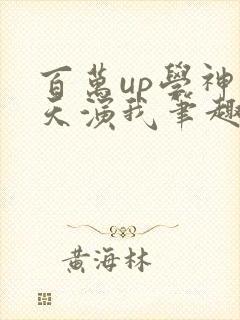 百萬up學神
天演我筆趣
黃海林